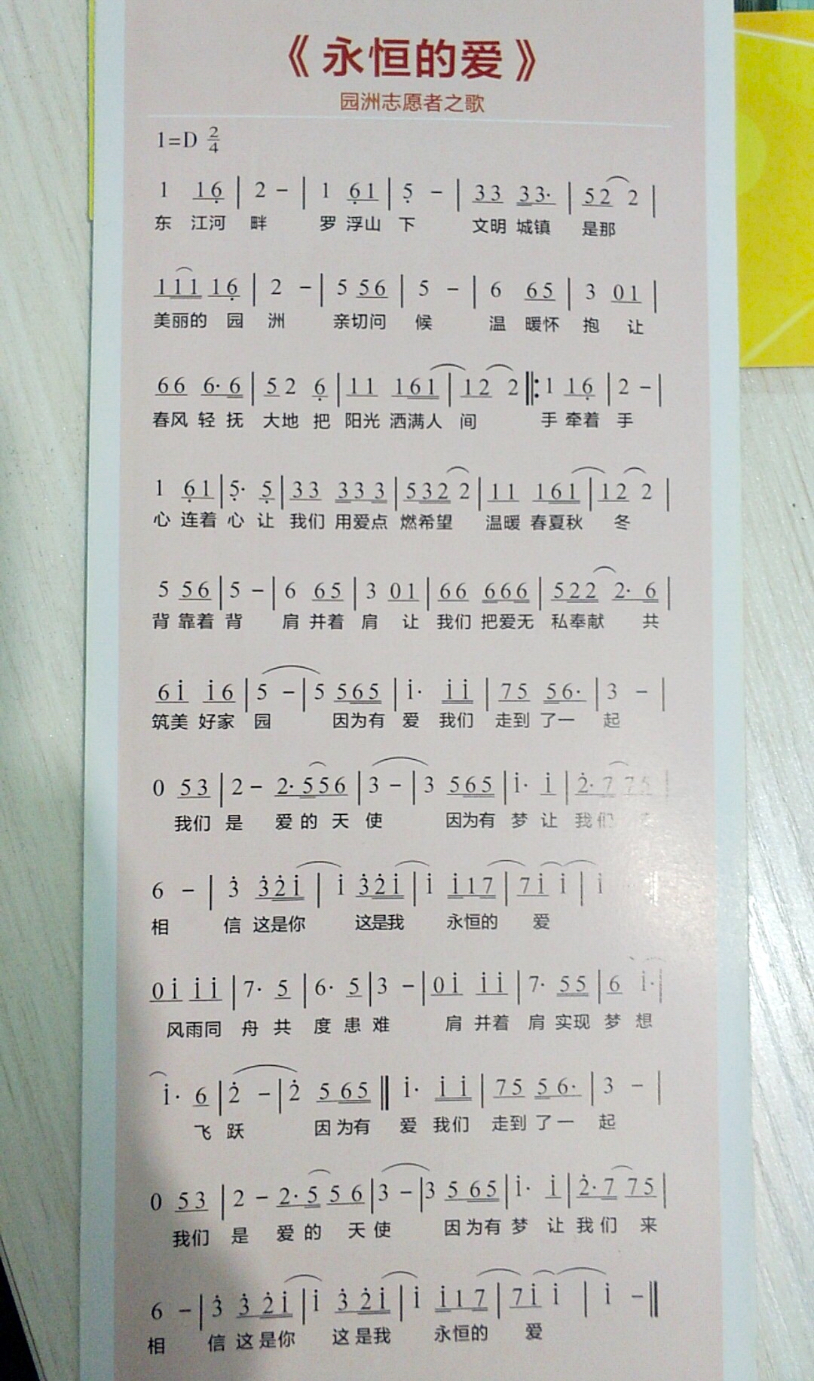 《永恒的爱》
园洲志愿者之歌
1=D 2/4
1 16 | 2 - | 1 61 | 5 - | 33 33· | 52 2 |
东 江河 畔 罗 浮山 下 文明 城镇 是那
111 16 | 2 - | 5 56 | 5 - | 6 65 | 3 01 |
美丽的 园 洲 亲切问 候 温 暖怀 抱 让
66 6·6 | 52 6 | 11 161 | 12 2 ‖: 1 16 | 2 - |
春风 轻 抚 大地 把 阳光 洒满人 间 手 牵着 手
1 61 | 5· 5 | 33 333 | 532 2 | 11 161 | 12 2 |
心 连着 心 让 我们 用爱点 燃希望 温暖 春夏秋 冬
5 56 | 5 - | 6 65 | 3 01 | 66 666 | 522 2· 6 |
背 靠着 背 肩 并着 肩 让 我们 把爱无 私奉献 共
6i i6 | 5 - | 5 565 | i· ii | 75 56· | 3 - |
筑美 好家 园 因为有 爱 我们 走到 了一 起
0 53 | 2 - 2·556 | 3 - | 3 565 | i· i | 2·7 75 |
我们 是 爱的 天 使 因为有 梦 让 我们
6 - | 3 32i | i 32i | i i17 | 7i i | i
相 信 这是你 这是我 永恒的 爱
0i ii | 7· 5 | 6· 5 | 3 - | 0i ii | 7· 55 | 6 i· |
风雨同 舟 共 度 患 难 肩 并着 肩 实现 梦 想
i· 6 | 2 - | 2 565 ‖ i· ii | 75 56· | 3 - |
飞 跃 因为有 爱 我们 走到 了一 起
0 53 | 2 - 2·5 56 | 3 - | 3 565 | i· i | 2·7 75 |
我们 是 爱 的 天使 因为有 梦 让 我们 来
6 - | 3 32i | i 32i | i i17 | 7i i | i - ‖
相 信 这是你 这是我 永恒的 爱